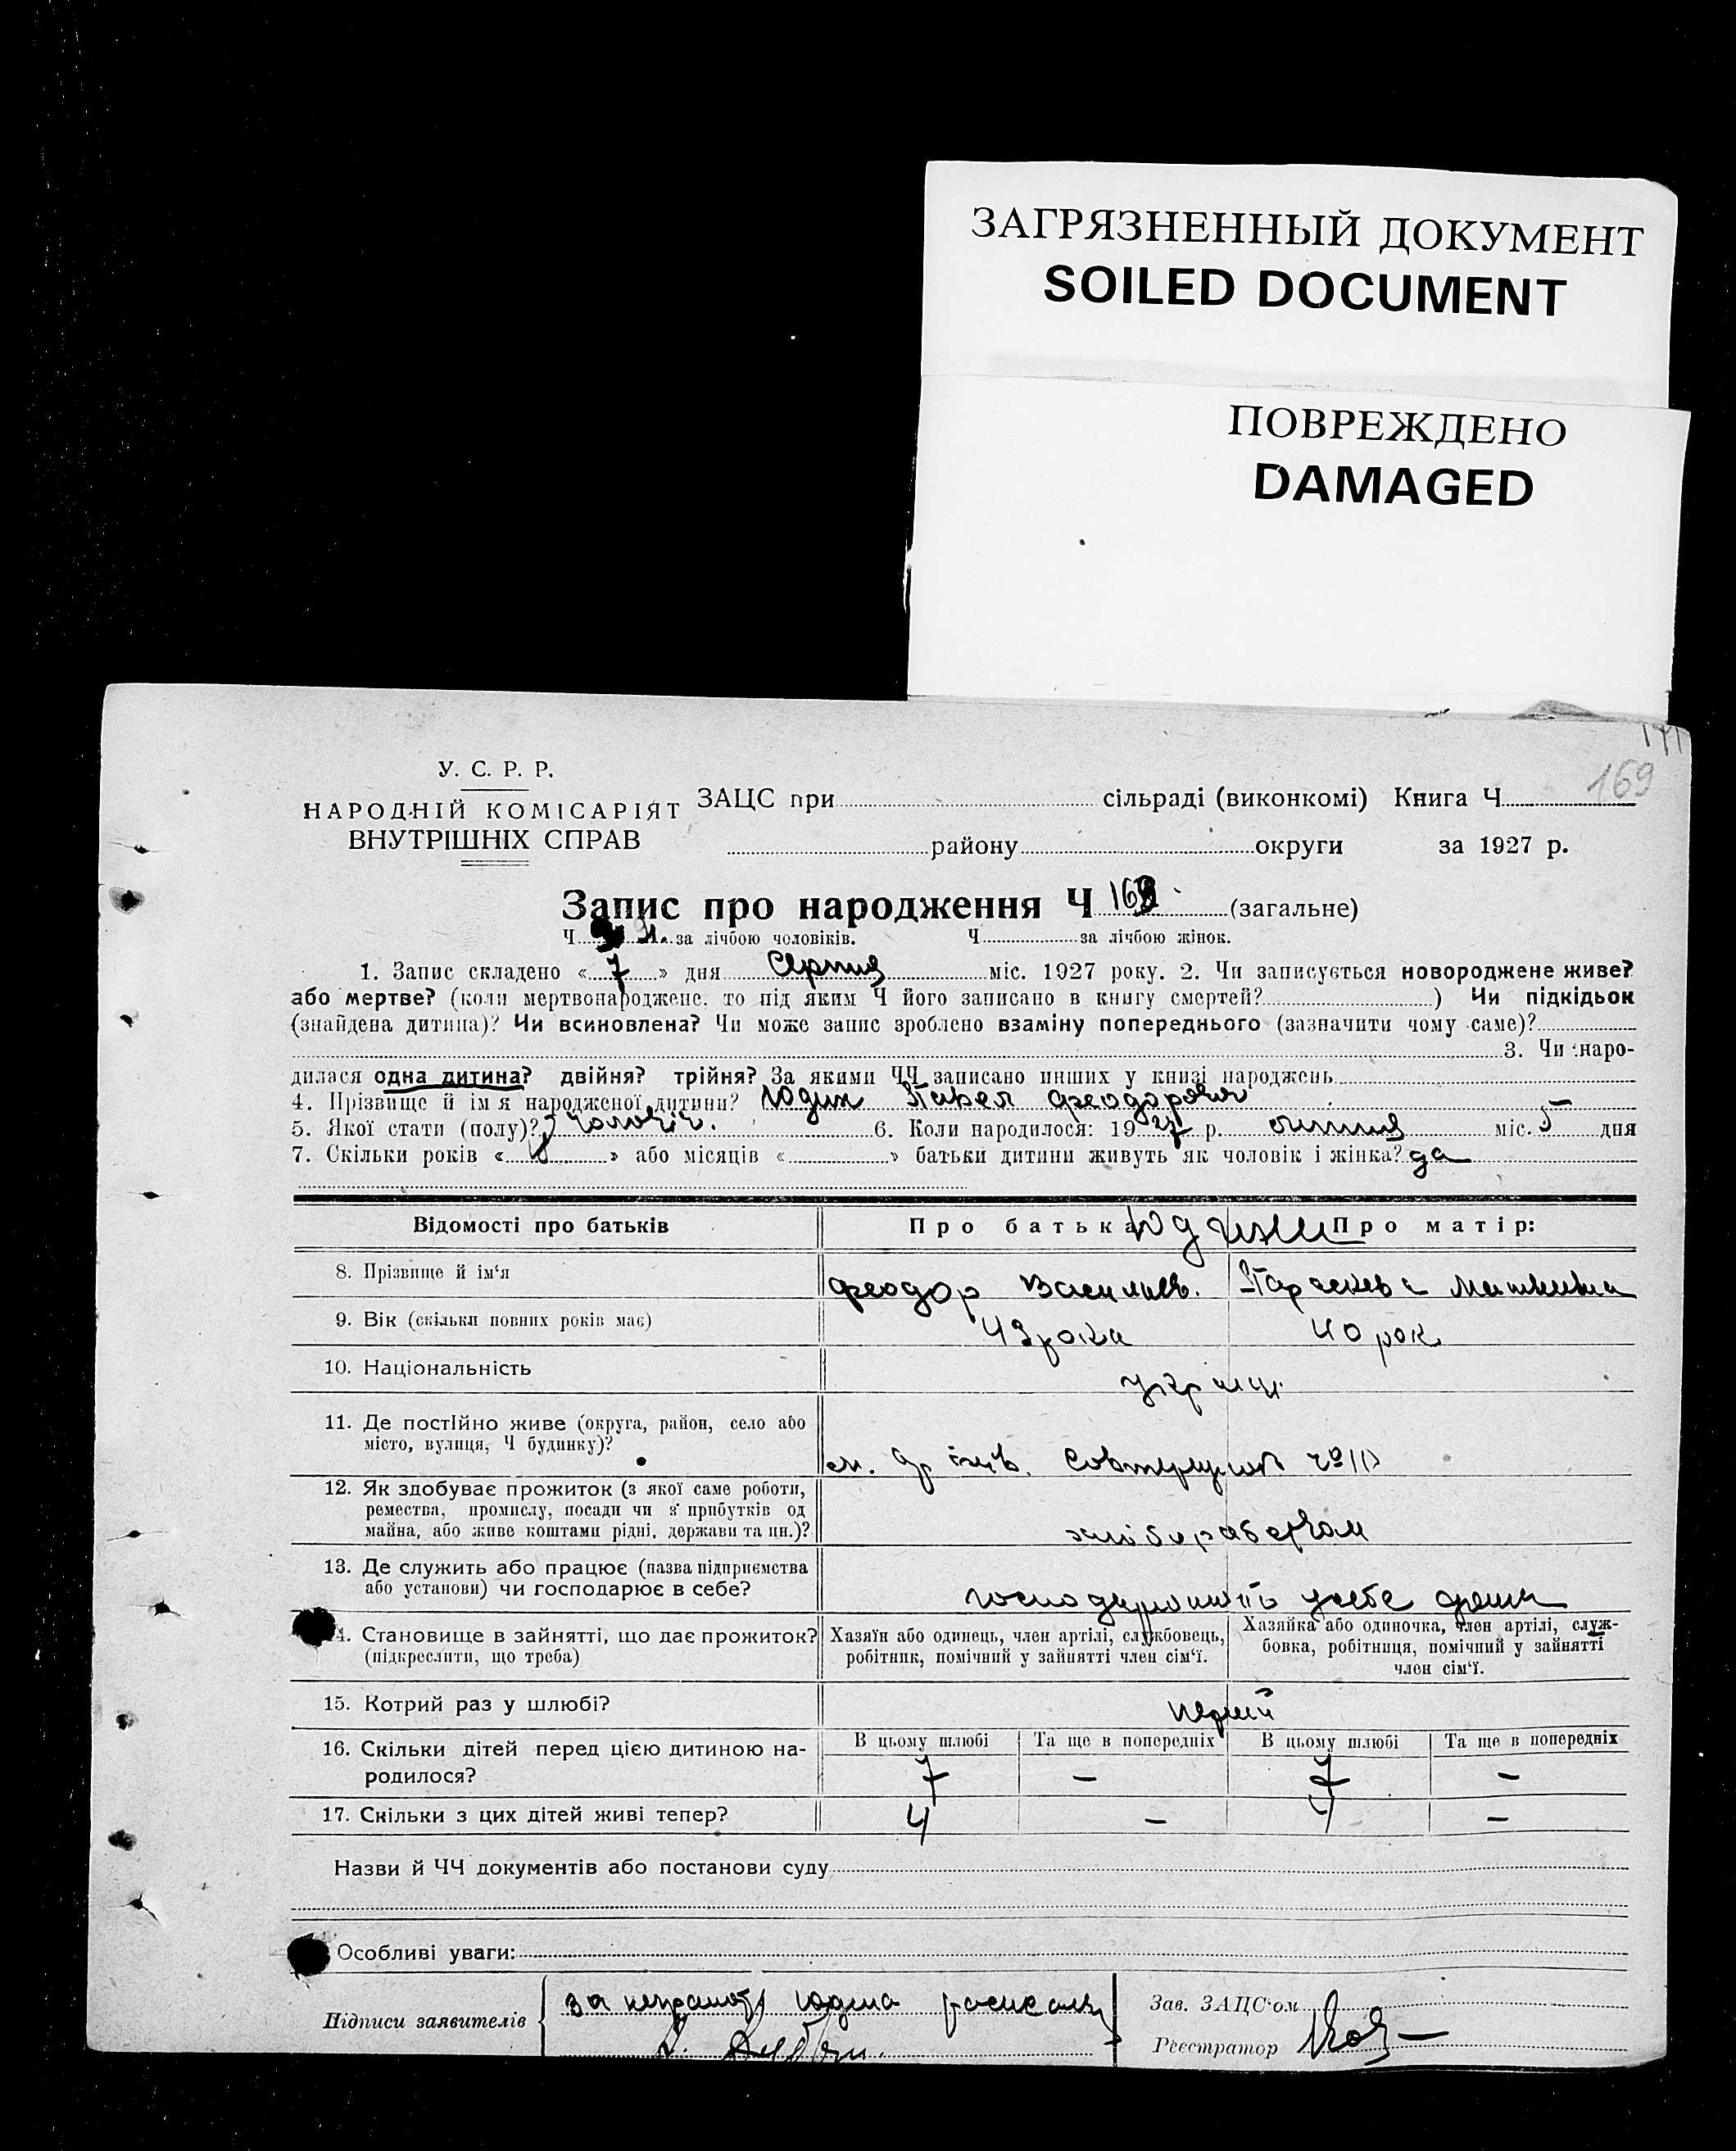 ЗАГРЯЗНЕННЫЙ ДОКУМЕНТ
SOILED DOCUMENT
ПОВРЕЖДЕНО
DAMAGED
169
У. С. Р. Р.
НАРОДНІЙ КОМІСАРІЯТ
ВНУТРІШНІХ СПРАВ
ЗАЦС при сільраді (виконкомі) Книга Ч
району округи за 1927 р.
Запис про народження Ч (загальне)
Ч за лічбою чоловіків. Ч за лічбою жінок.
1. Запис складено « 7 » дня Серпня міс. 1927 року. 2. Чи записується новороджене живе?
або мертве? (коли мертвонароджене, то під яким Ч його записано в книгу смертей? ) Чи підкідьок
(знайдена дитина)? Чи всиновлена? Чи може запис зроблено взаміну попереднього (зазначити чому саме)?
3. Чи наро-
дилася одна дитина? двійня? трійня? За якими ЧЧ записано инших у книзі народжень
4. Прізвище й ім я народженої дитини? Юдин Павел Феодорович
5. Якої стати (полу)? чоловіч. 6. Коли народилося: 19 27 р. липня міс. 5 дня
7. Скільки років « » або місяців « » батьки дитини живуть як чоловік і жінка? да
Відомості про батьків Про батька Юдини Про матір:
8. Прізвище й ім'я Феодор Васильев. Параскева
9. Вік (скільки повних років має) 43 рока 40 рок
10. Національність
11. Де постійно живе (округа, район, село або
місто, вулиця, Ч будинку)?
12. Як здобуває прожиток (з якої саме роботи,
ремества, промислу, посади чи з прибутків од
майна, або живе коштами рідні, держави та ин.)?
13. Де служить або працює (назва підприємства
або установи) чи господарює в себе? у себе дома
14. Становище в зайнятті, що дає прожиток?
(підкреслити, що треба)
Хазяїн або одинець, член артілі, службовець,
робітник, помічний у зайнятті член сім'ї.
Хазяйка або одиночка, член артілі, служ-
бовка, робітниця, помічний у зайнятті
член сім'ї.
15. Котрий раз у шлюбі? перший
16. Скільки дітей перед цією дитиною на-
родилося?
В цьому шлюбі Та ще в попередніх В цьому шлюбі Та ще в попередніх
7 – 7 –
17. Скільки з цих дітей живі тепер? 4 – 4 –
Назви й ЧЧ документів або постанови суду
Особливі уваги:
Підписи заявителів
за неграмот Юдина
Зав. ЗАЦС'ом
Реєстратор